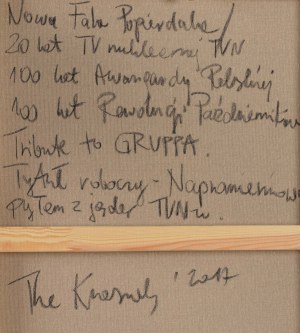 Nowa Fala Popierdala/
20 lat TV nuklearnej TVN
100 lat Awangardy Polskiej
100 lat Rewolucji Październikow
Tribute to GRUPPA.
Tytuł roboczy - Napromieniow
pyłem z jąder TVN-u.
The Krasnals '2017